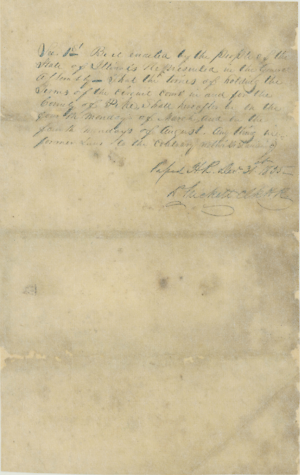 Sec 1st Be it enacted by the people of the
State of Illinois Represented in the General
Assembly That the times of holding the
Terms of the Circuit Court in and for the
County of Pike shall hereafter be on the
fourth mondays of March and on the
fourth mondays of August any thing in
former Laws to the contrary notwithstanding
Passed H. R. Dec 31st